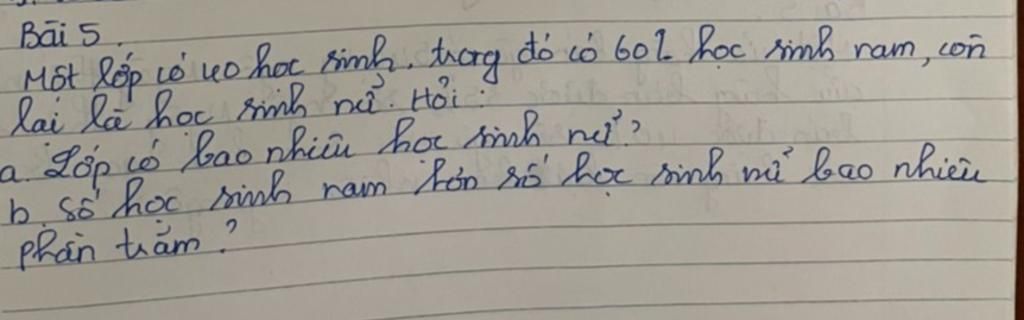 Bài 5.
Một lớp có 40 học sinh. trong đó có 60% học sinh nam, còn
lại là học sinh nữ. Hỏi:
a. Lớp có bao nhiêu học sinh nữ?
b. Số học sinh nam hơn số học sinh nữ bao nhiêu
phần trăm?